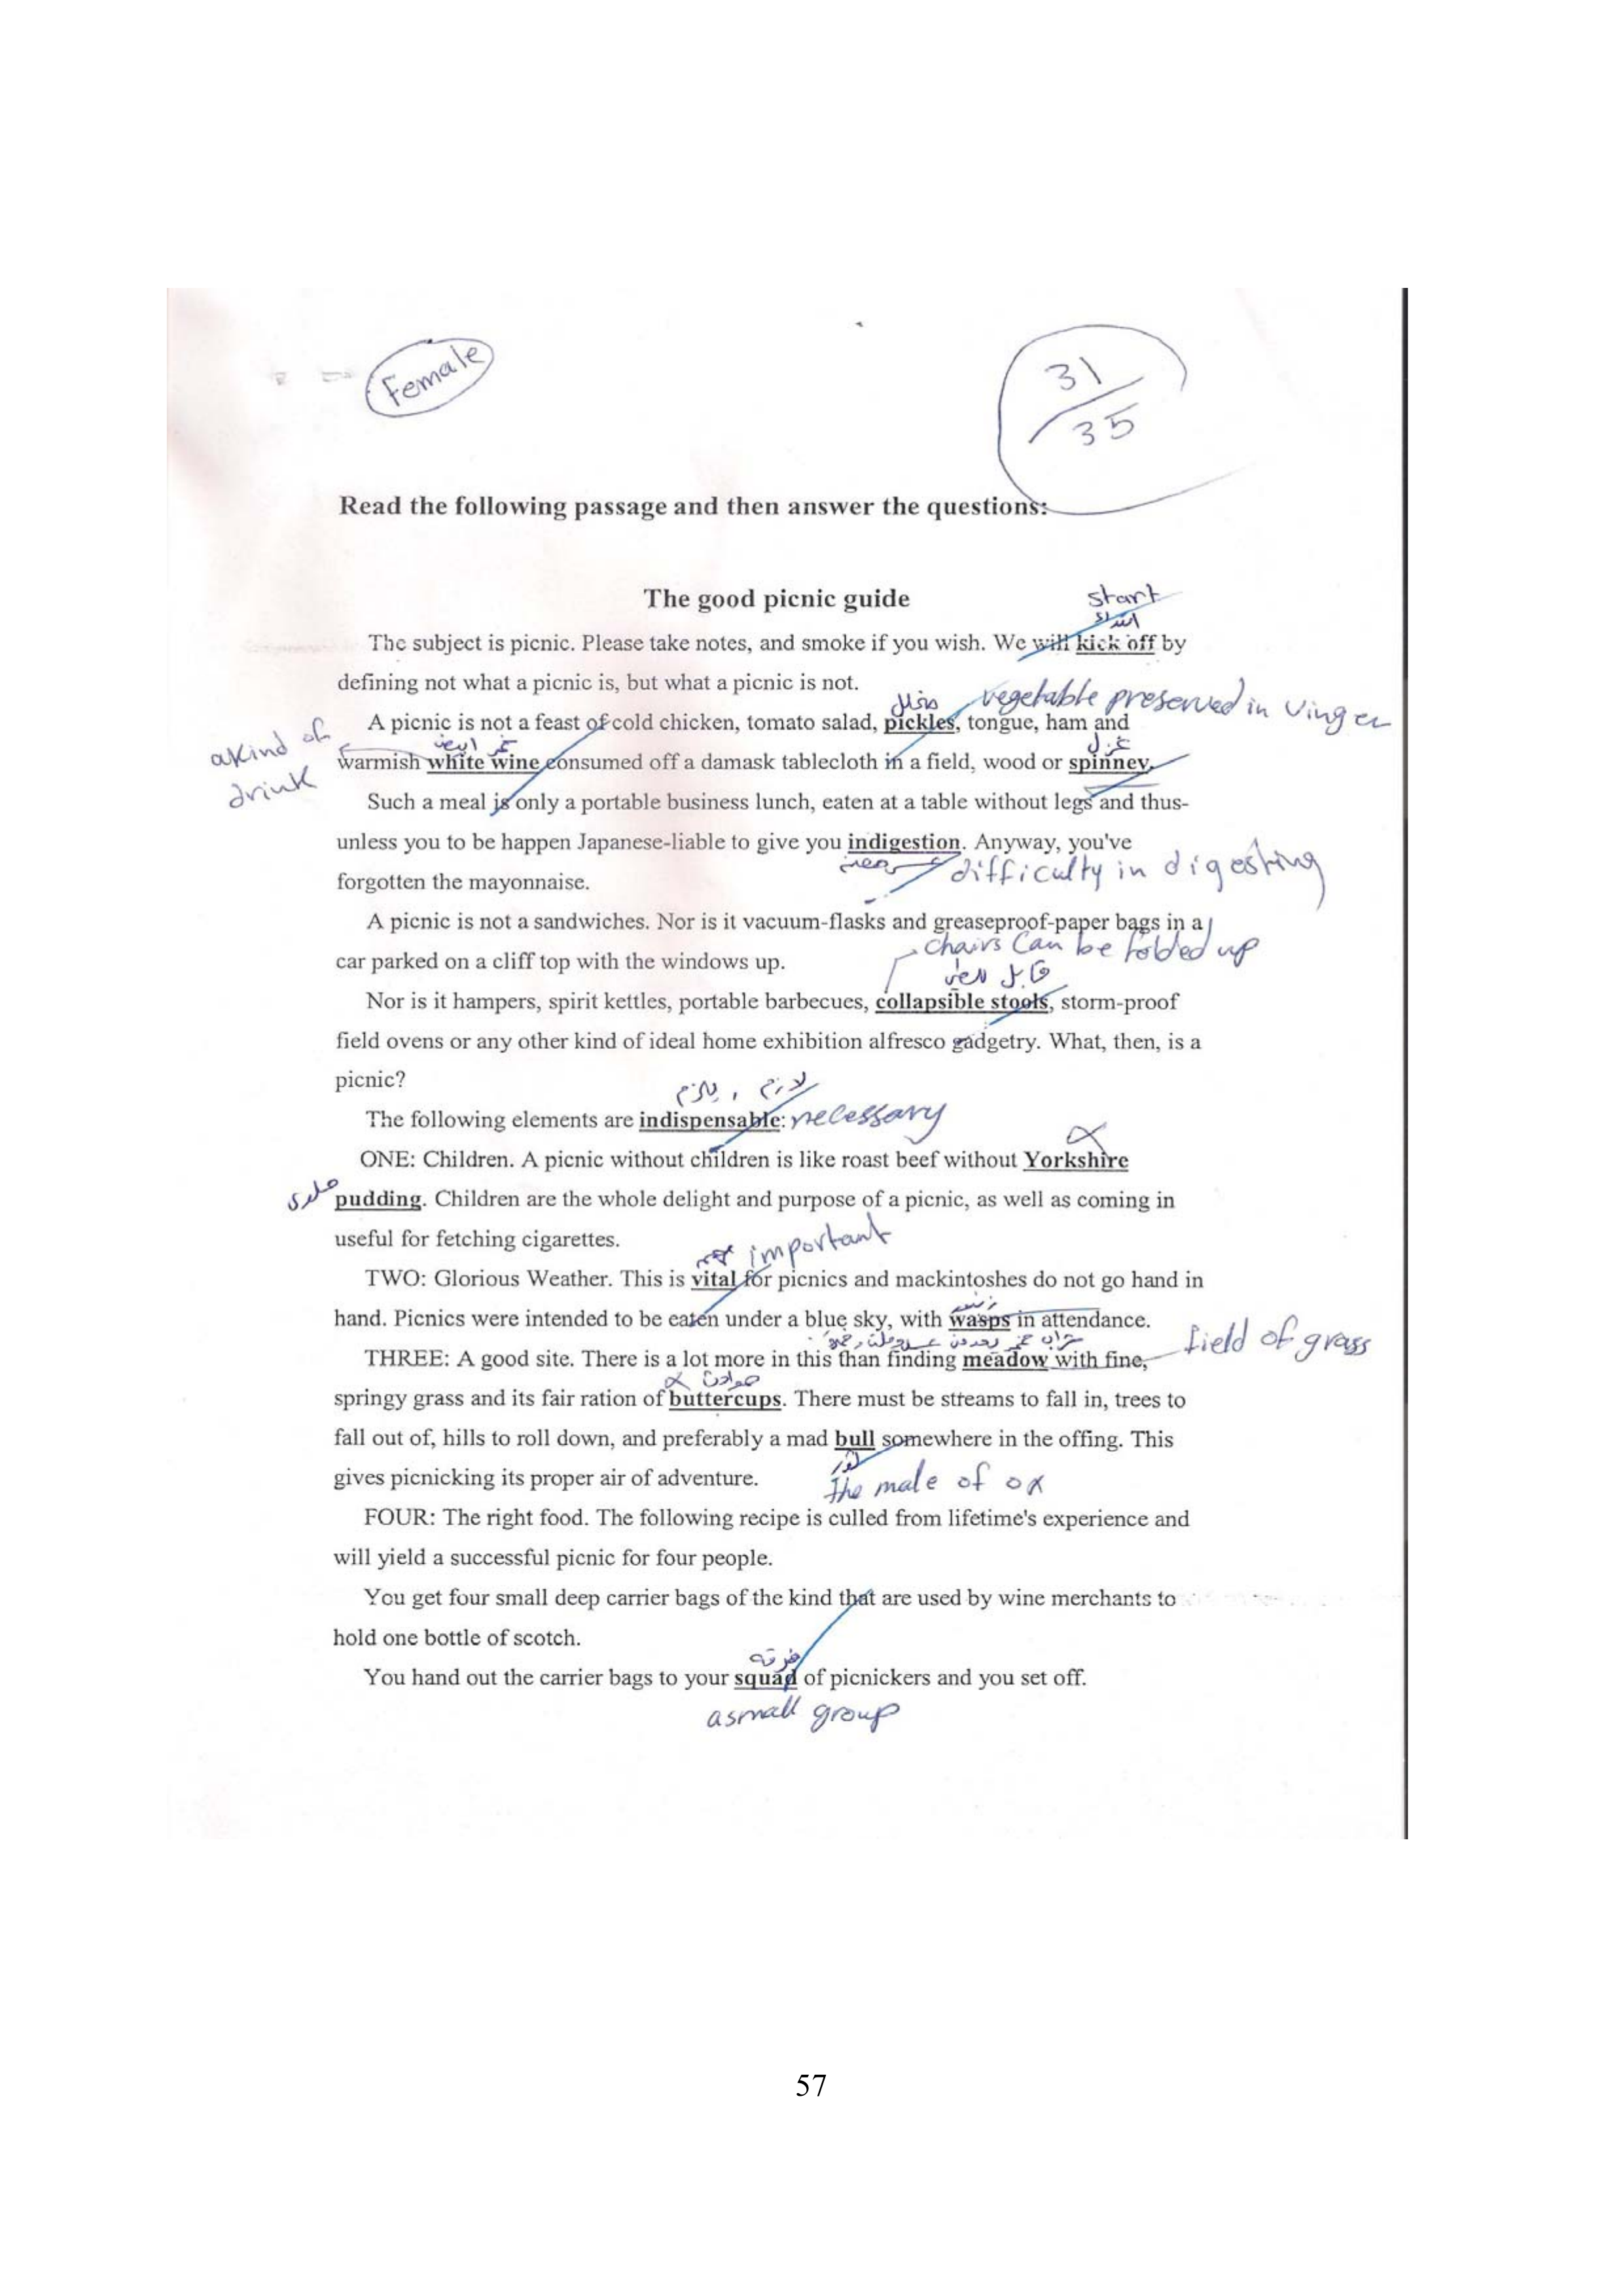 Female
31
35
Read the following passage and then answer the questions:
The good picnic guide
start
The subject is picnic. Please take notes, and smoke if you wish. We will kick off by
defining not what a picnic is, but what a picnic is not.
مخلل vegetable preserved in vinger
A picnic is not a feast of cold chicken, tomato salad, pickles, tongue, ham and
akind of drink
خمر ابيض
warmish white wine consumed off a damask tablecloth in a field, wood or spinney.
Such a meal is only a portable business lunch, eaten at a table without legs and thus-
unless you to be happen Japanese-liable to give you indigestion. Anyway, you've
عسر هضم difficulty in digesting
forgotten the mayonnaise.
A picnic is not a sandwiches. Nor is it vacuum-flasks and greaseproof-paper bags in a
chairs can be folded up
car parked on a cliff top with the windows up.
Nor is it hampers, spirit kettles, portable barbecues, collapsible stools, storm-proof
field ovens or any other kind of ideal home exhibition alfresco gadgetry. What, then, is a
picnic?
لازم , يلزم
The following elements are indispensable: necessary
ONE: Children. A picnic without children is like roast beef without Yorkshire
pudding. Children are the whole delight and purpose of a picnic, as well as coming in
useful for fetching cigarettes.
مهم important
TWO: Glorious Weather. This is vital for picnics and mackintoshes do not go hand in
hand. Picnics were intended to be eaten under a blue sky, with wasps in attendance.
field of grass
THREE: A good site. There is a lot more in this than finding meadow with fine,
springy grass and its fair ration of buttercups. There must be streams to fall in, trees to
fall out of, hills to roll down, and preferably a mad bull somewhere in the offing. This
ثور
gives picnicking its proper air of adventure.
the male of ox
FOUR: The right food. The following recipe is culled from lifetime's experience and
will yield a successful picnic for four people.
You get four small deep carrier bags of the kind that are used by wine merchants to
hold one bottle of scotch.
فرقة
You hand out the carrier bags to your squad of picnickers and you set off.
asmall group
57